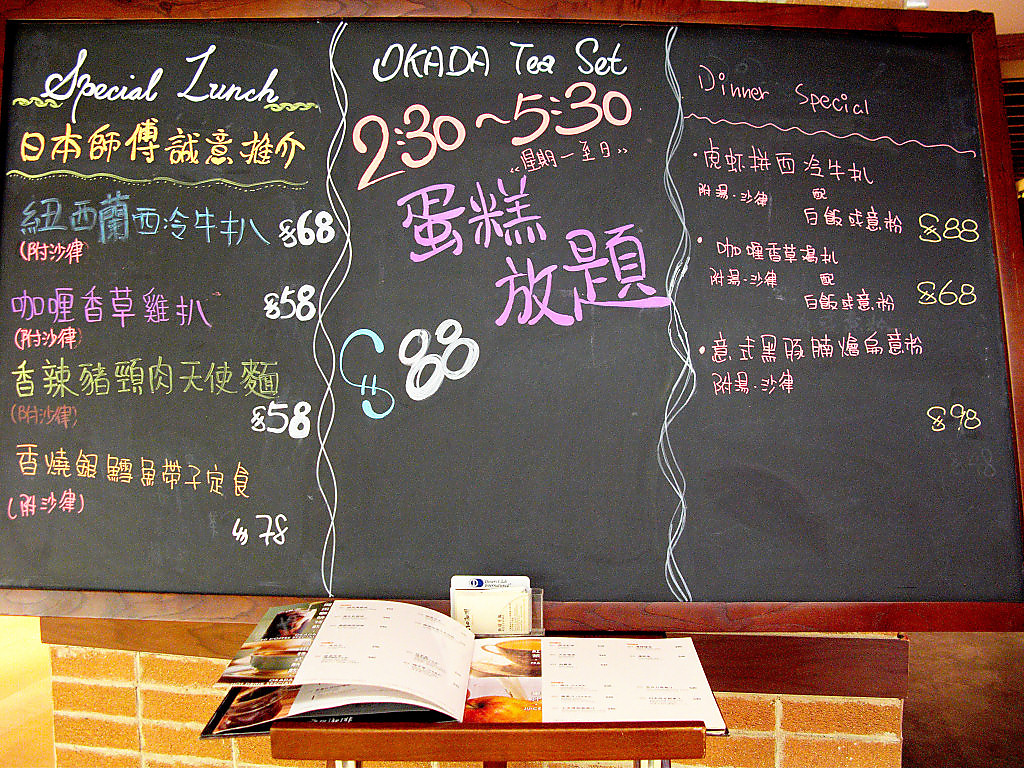 Special Lunch
日本師傅誠意推介
紐西蘭西冷牛扒 $68
(附沙律)
咖喱香草雞扒 $58
(附沙律)
香辣豬頸肉天使麵
(附沙律) $58
香燒銀鱈魚帶子定食
(附沙律)
$78
OKADA Tea Set
2:30~5:30
"星期一至日"
蛋糕
放題
$88
Dinner Special
·虎虾拼西冷牛扒
附湯·沙律 配
白飯或意粉 $88
·咖喱香草鳮扒
附湯·沙律 配
白飯或意粉 $68
·意式黑豚腩燴扁意粉
附湯·沙律
$98
Diners Club
International